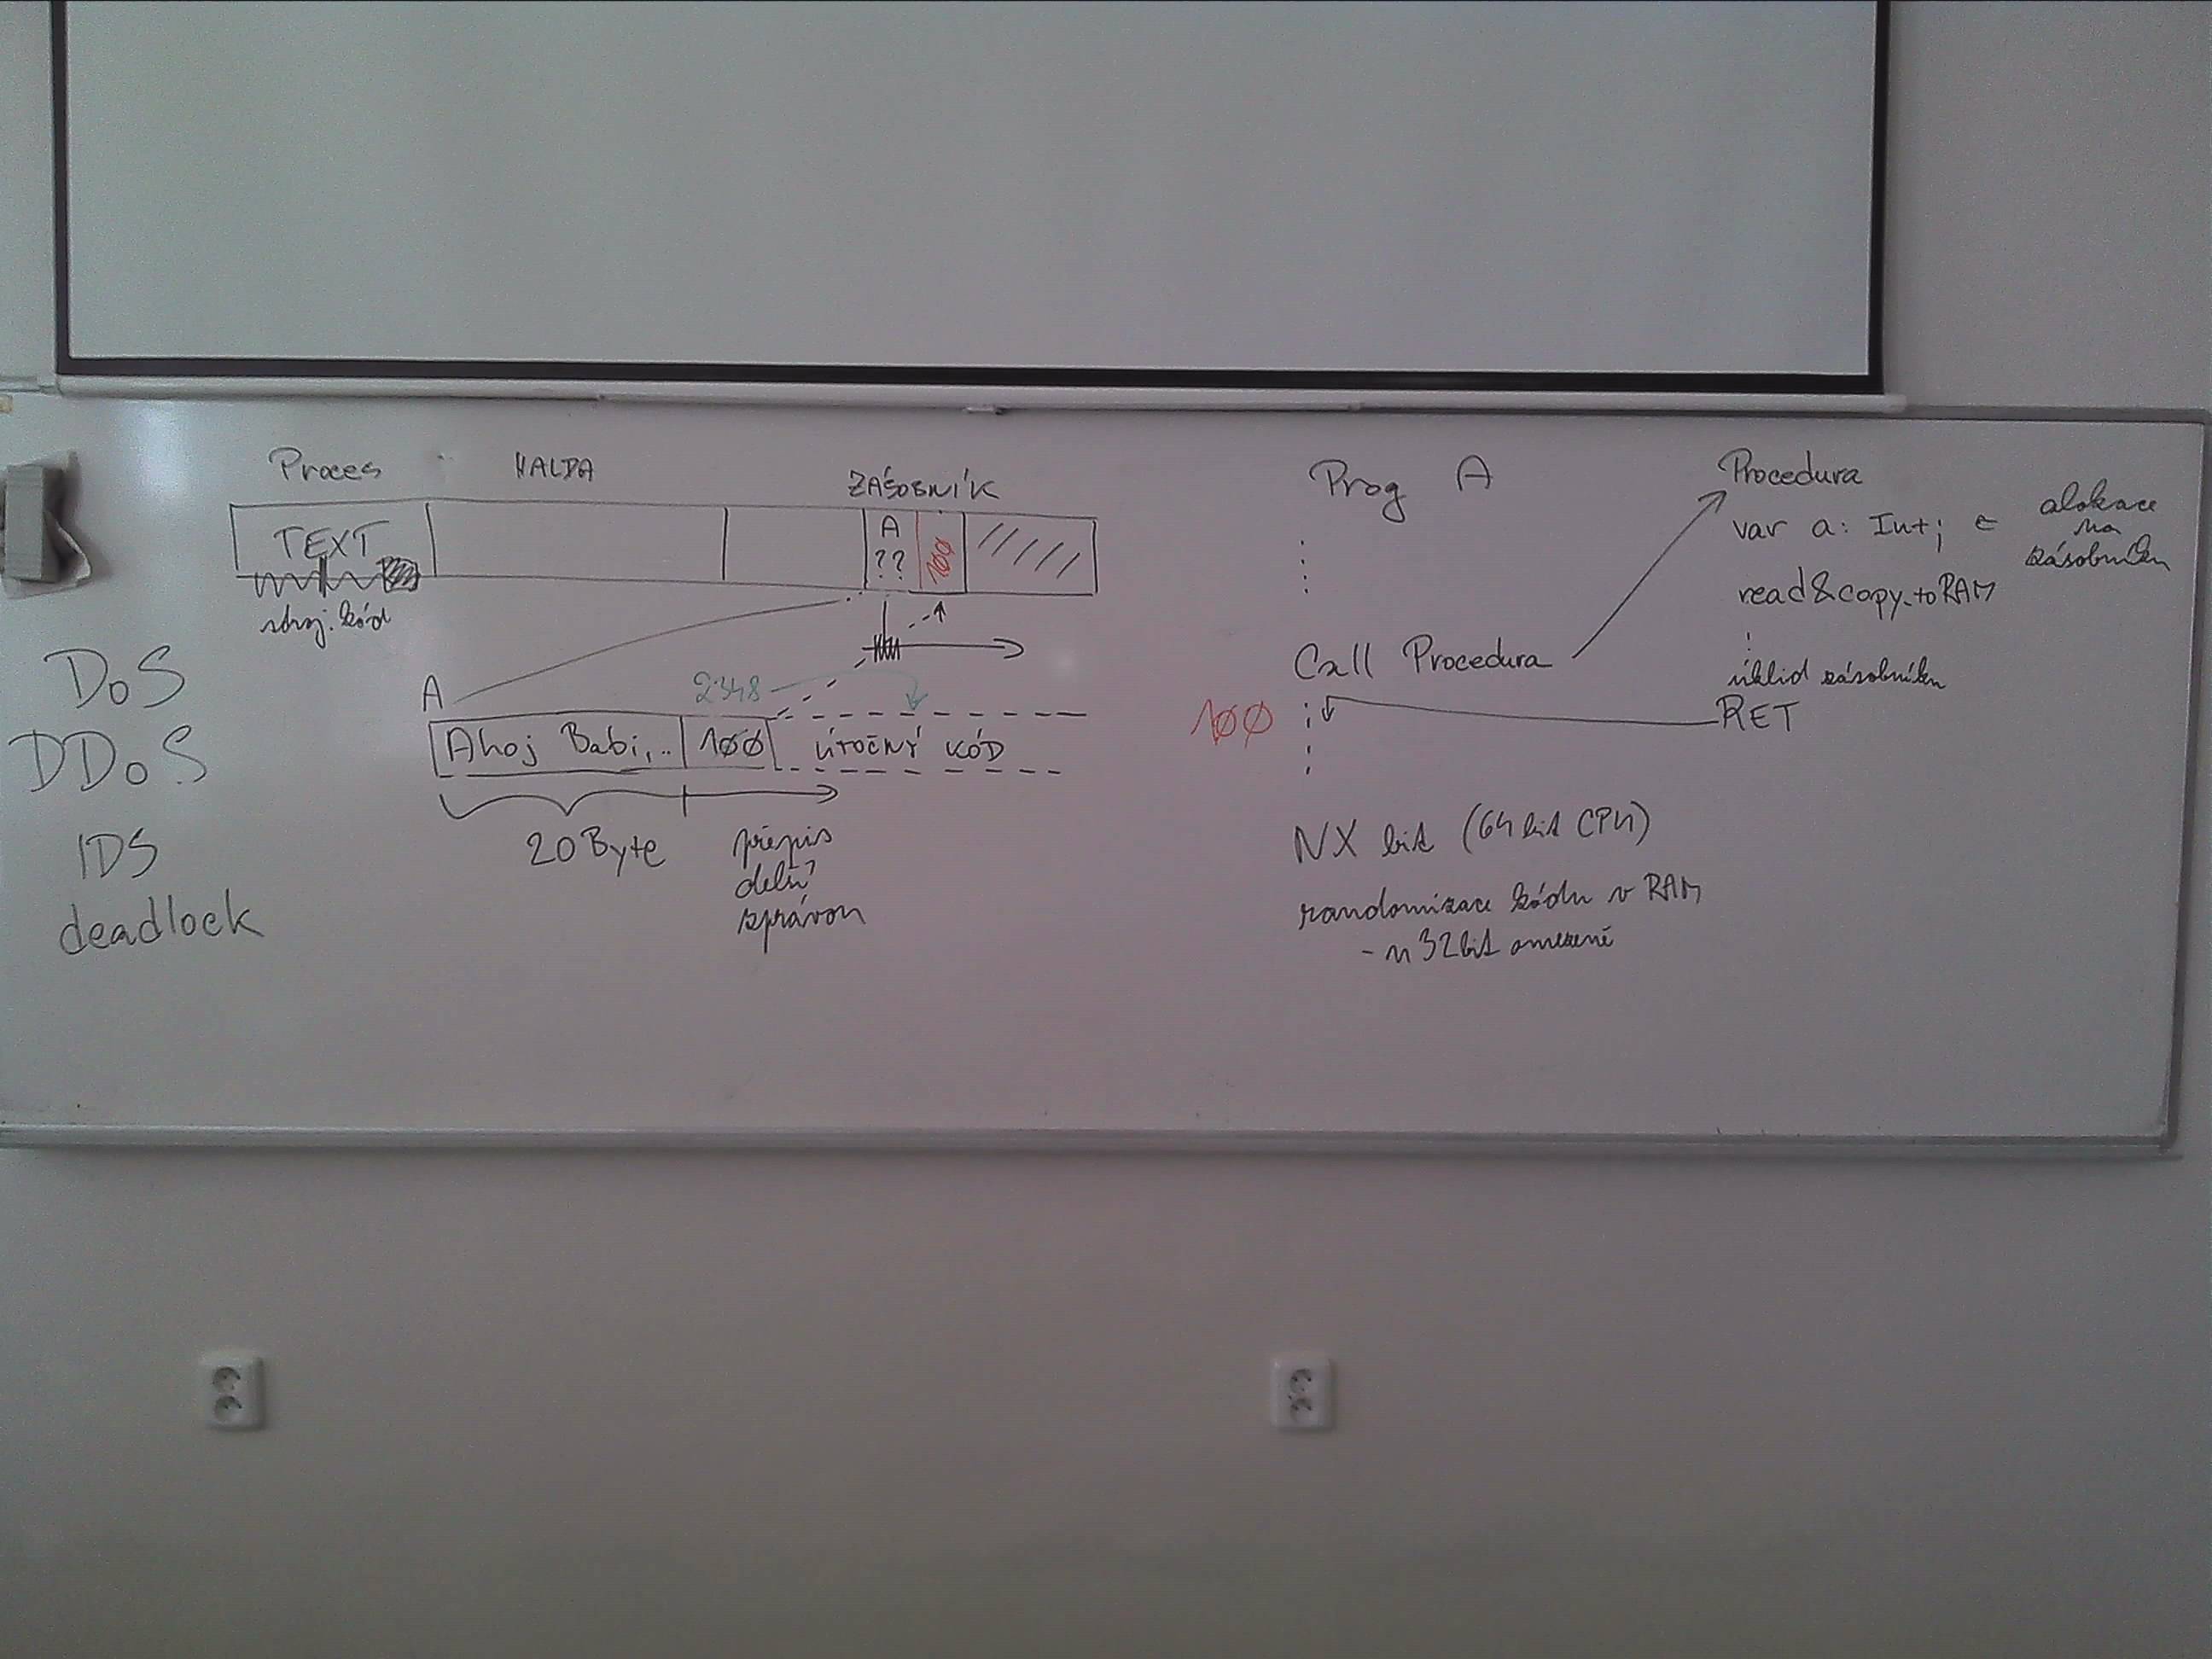 Proces HALDA ZÁSOBNÍK
TEXT A ?? 100
zdroj. kód
DoS
DDoS
IDS
deadlock
A 2348
Ahoj Babi,.. 100 ÚTOČNÝ KÓD
20 Byte
přepis
delší
zprávou
Prog A
Call Procedura
100
Procedura
var a: Int;
alokace
na
zásobníku
read&copy.toRAM
úklid zásobníku
RET
NX bit (64 bit CPU)
randomizace kódu v RAM
- u 32bit omezené